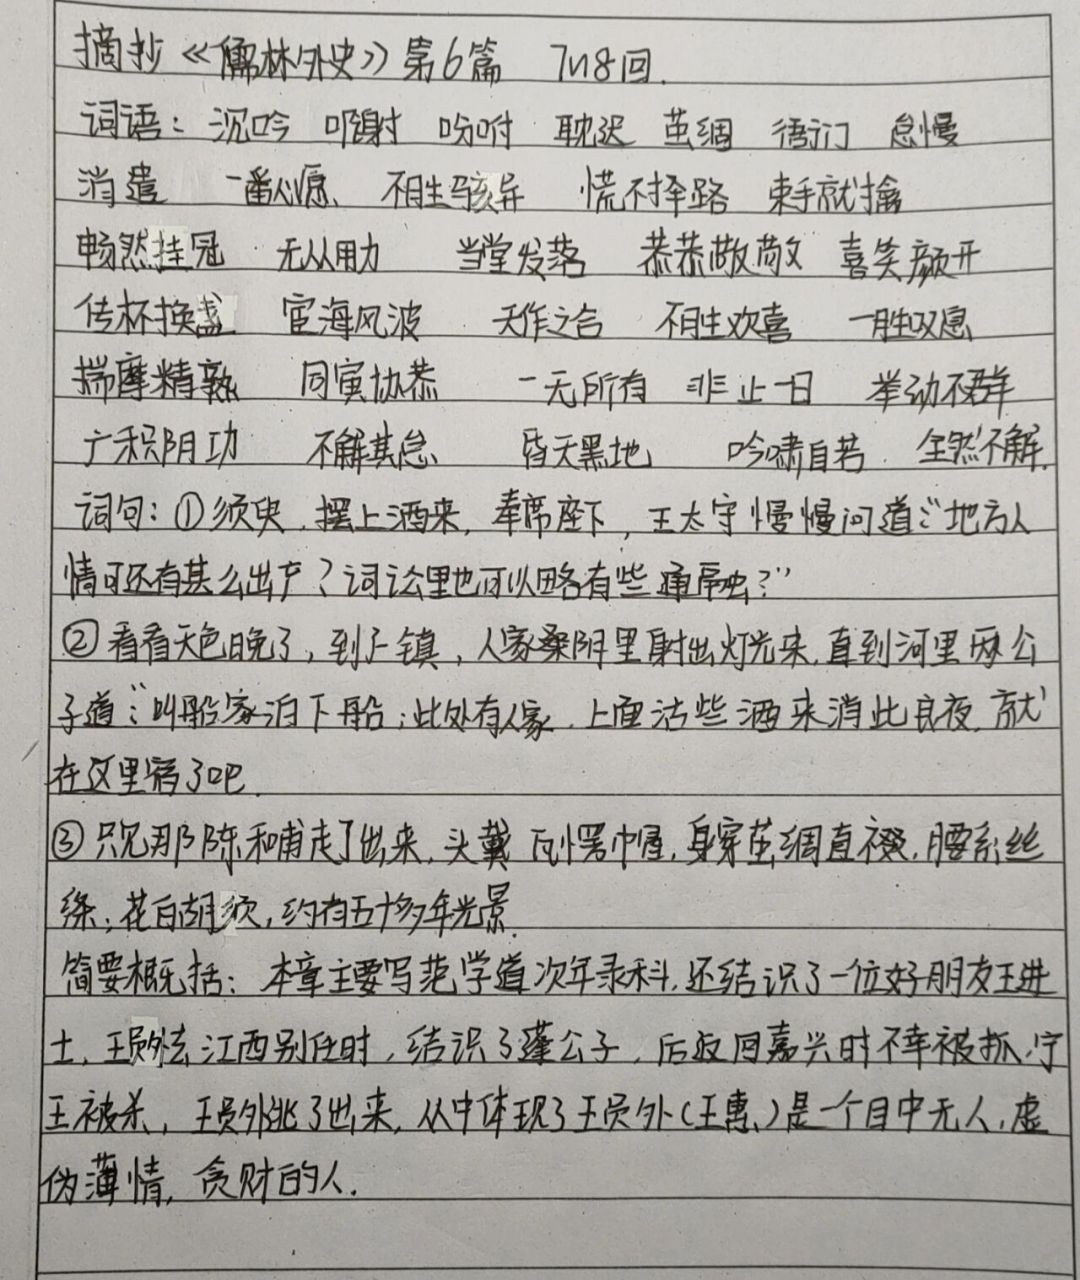 摘抄《儒林外史》第6篇 7~8回.
词语: 沉吟 叩谢 吩咐 耽迟 茧绸 衙门 怠慢
消遣 一番心愿、 不相骇异 慌不择路 束手就擒
畅然挂冠 无从用力 当堂发落 恭恭敬敬 喜笑颜开
传杯换盏 宦海风波 天作之合 不胜欢喜 一胜叹息
揣摩精熟 同寅协恭 一无所有 非止一日 举动不群
广积阴功 不解其怠、 昏天黑地 吟啸自若 全然不解.
词句: ①须臾, 摆上酒来, 奉席座下, 王太守慢慢问道:“地方人
情可还有甚么出产? 词讼里也可以略有些通融?”
②看看天色晚了, 到了镇, 人家桑阴里射出灯光来, 直到河里两公
子道:“叫船家泊下船; 此处有人家, 上面沽些酒来消此良夜, 就
在这里宿了吧.
③只见那陈和甫走了出来, 头戴瓦愣巾幄, 身穿茧绸直裰, 腰系丝
绦; 花白胡须, 约有五十多年光景.
简要概括: 本章主要写范学道次年录科, 还结识了一位好朋友王进
士, 王员外去江西别任时, 结识了蘧公子, 后返回嘉兴时不幸被抓, 宁
王被杀, 王员外逃了出来, 从中体现了王员外(王惠、)是一个目中无人, 虚
伪薄情, 贪财的人.